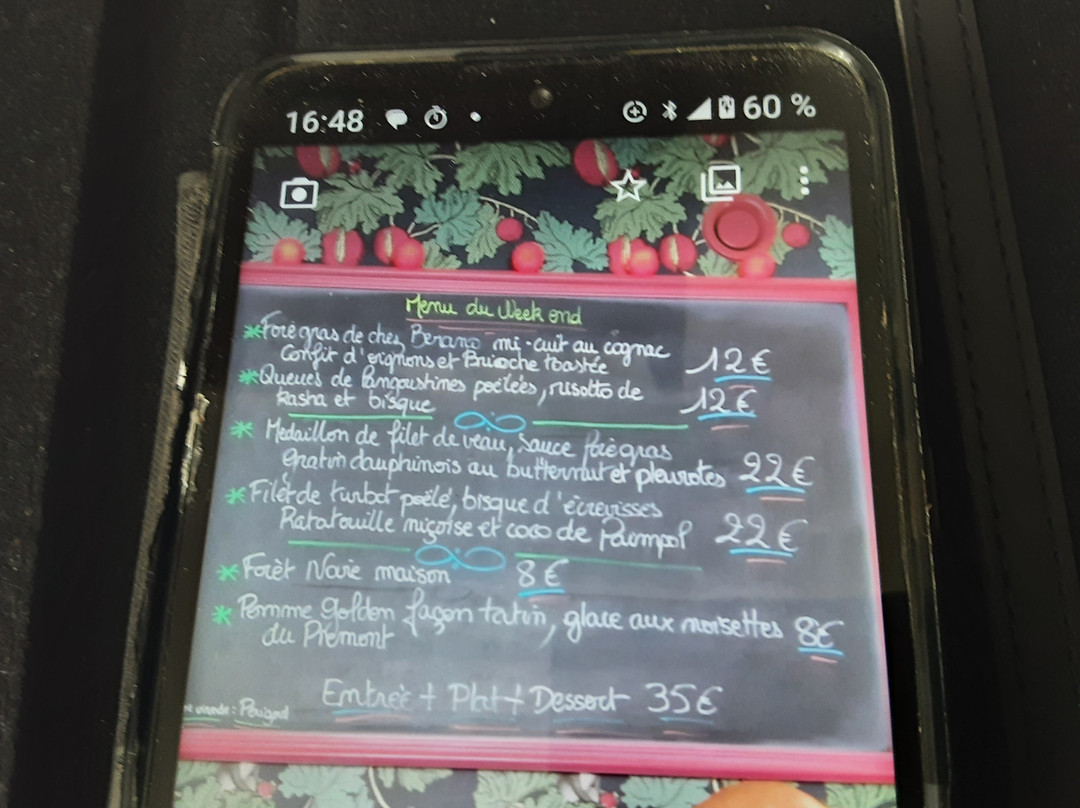 16:48 60 %
Menu du Week end
*Foie gras de chez mi-cuit au cognac
Confit d'oignons et Brioche toastée 12€
*Queues de langoustines poêlées, risotto de
kasha et bisque 12€
* Médaillon de filet de veau, sauce foie gras
gratin dauphinois au butternut et pleurotes 22€
* Filet de turbot poêlé, bisque d'écrevisses
Ratatouille niçoise et coco de Paimpol 22€
* Forêt Noire maison 8€
* Pomme golden façon tatin, glace aux noisettes 8€
du Piémont
Entrée + Plat + Dessert 35€
viande : Périgord